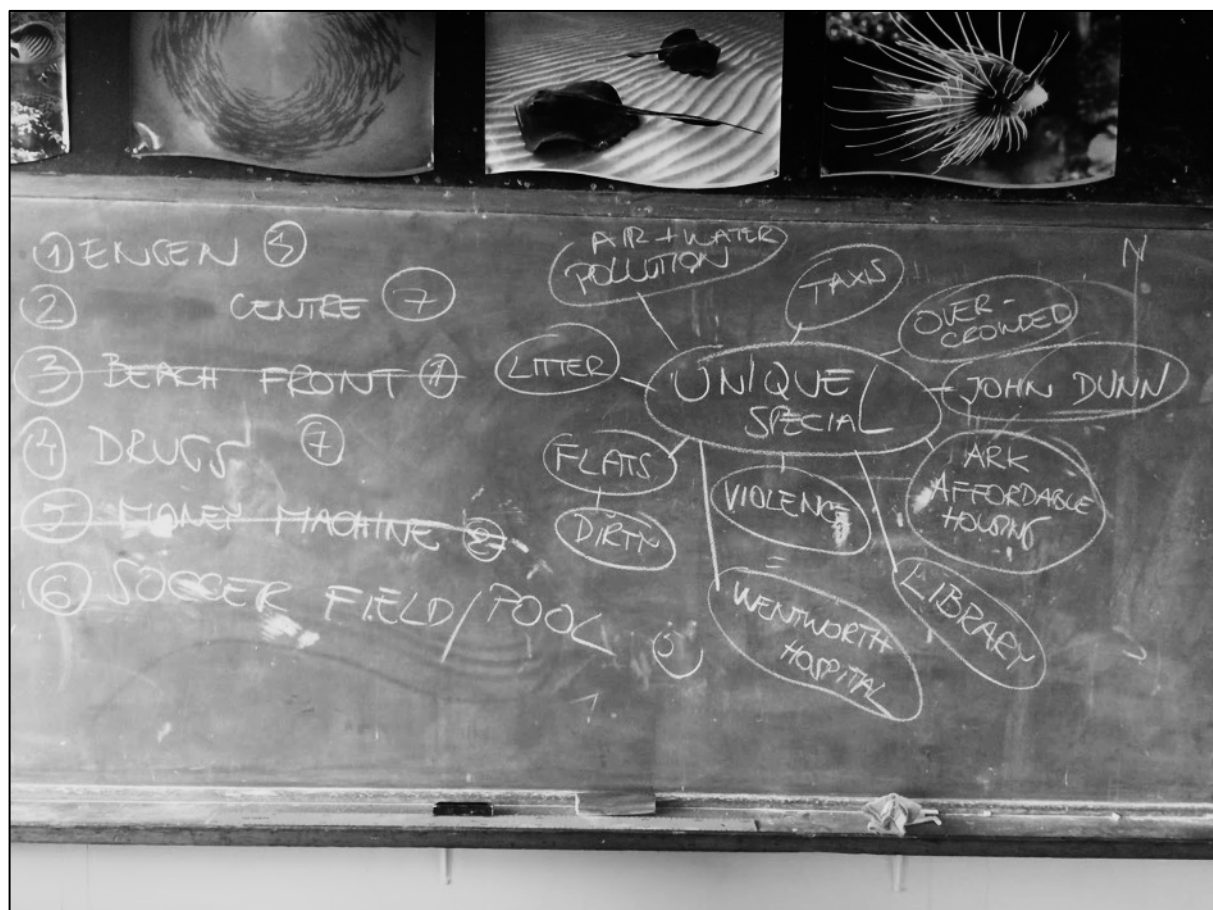 ① ENGEN ⑤
② CENTRE ⑦
③ BEACH FRONT ①
④ DRUGS ⑦
⑤ MONEY MACHINE ②
⑥ SOCCER FIELD/POOL ⑤
AIR + WATER
POLLUTION
TAXIS
OVER-
CROWDED
N
LITTER
UNIQUE
SPECIAL
JOHN DUNN
FLATS
DIRTY
VIOLENCE
ARK
AFFORDABLE
HOUSING
WENTWORTH
HOSPITAL
LIBRARY